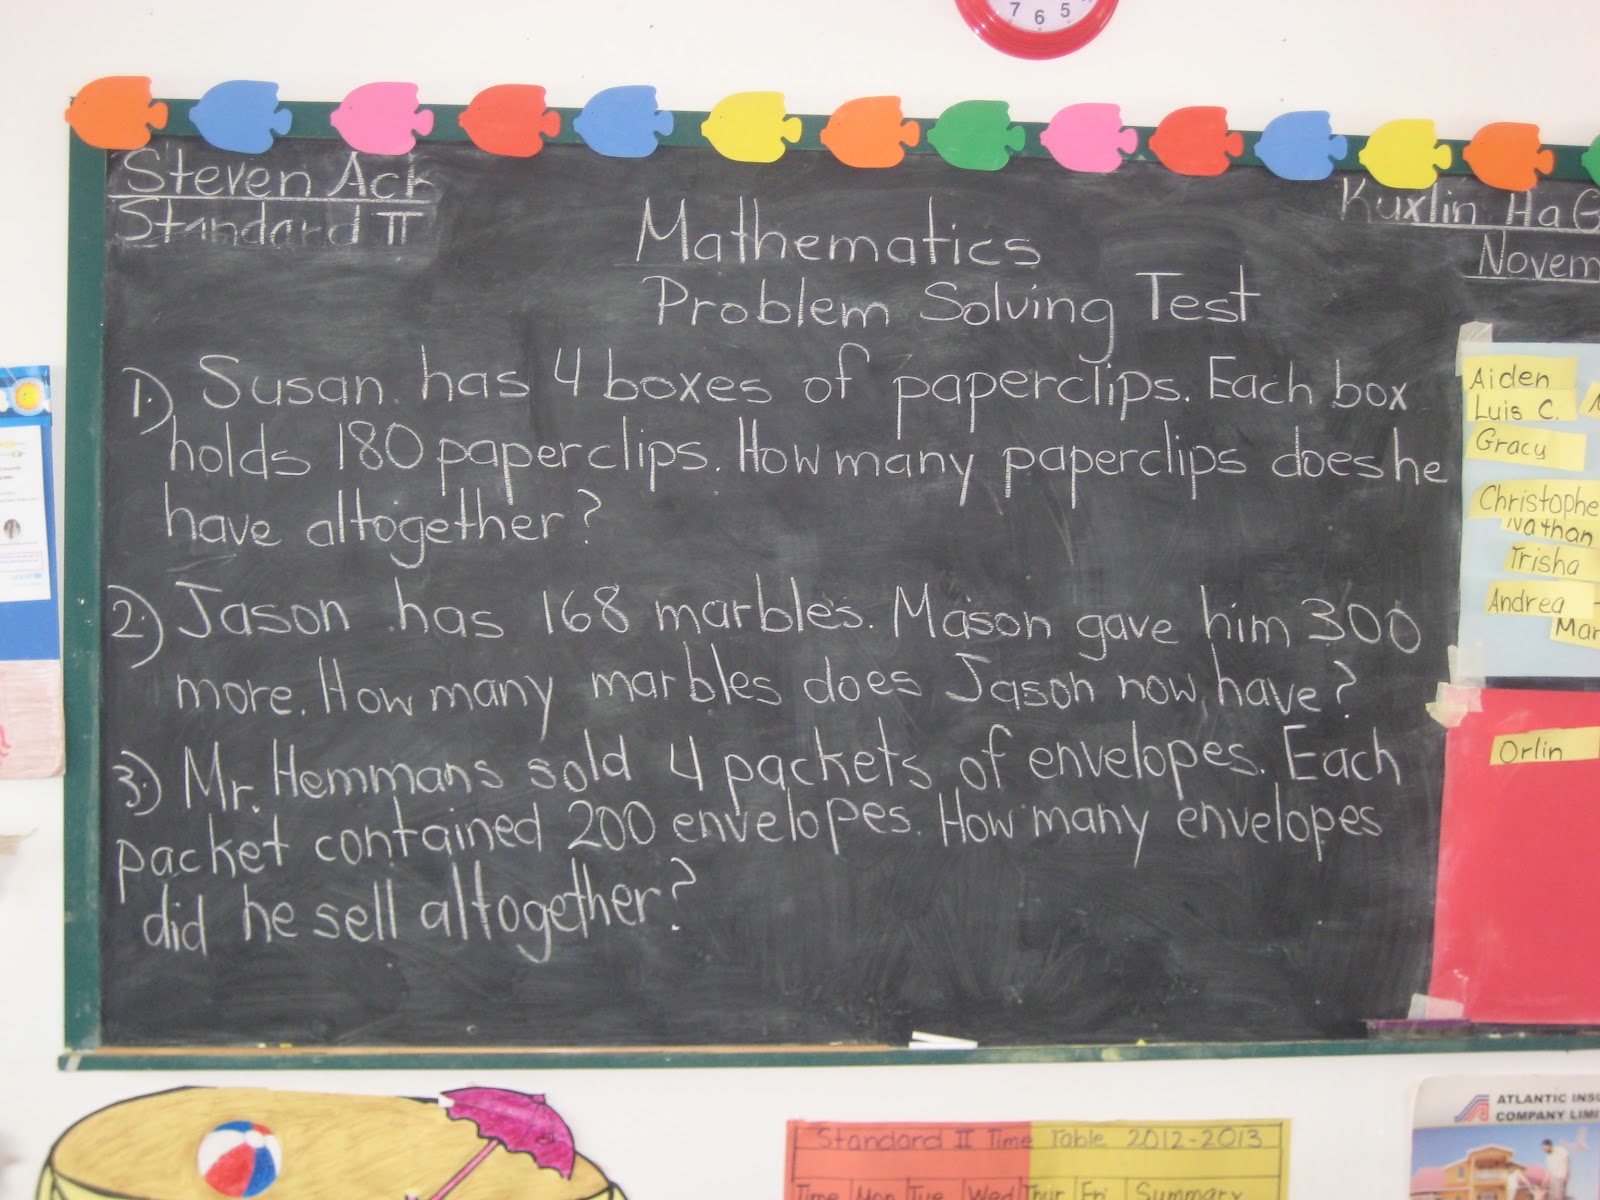 7 6 5
Steven Ack
Standard II
Kuxlin Ha G
Novem
Mathematics
Problem Solving Test
1.) Susan has 4 boxes of paperclips. Each box
holds 180 paperclips. How many paperclips does he
have altogether?
2.) Jason has 168 marbles. Mason gave him 300
more. How many marbles does Jason now have?
3.) Mr. Hemmans sold 4 packets of envelopes. Each
packet contained 200 envelopes. How many envelopes
did he sell altogether?
Aiden
Luis C.
Gracy
Christophe
Nathan
Trisha
Andrea
Mar
Orlin
Standard II Time Table 2012-2013
Time Mon Tue Wed Thur Fri Summary
ATLANTIC INSU
COMPANY LIMI